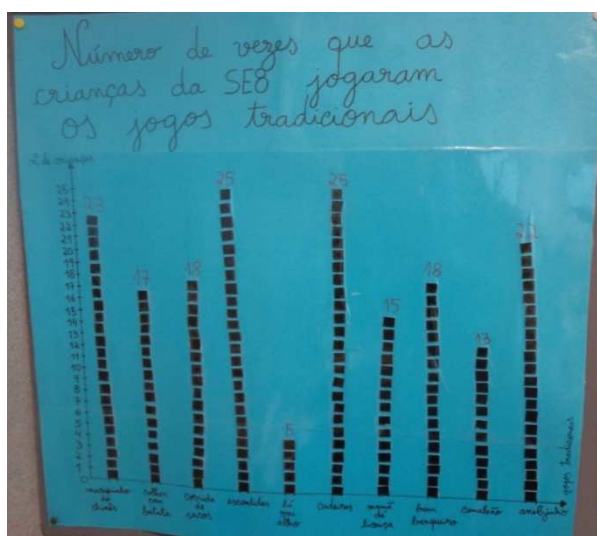 Número de vezes que as
crianças da SE8 jogaram
os jogos tradicionais
25
24
23
22
21
20
19
18
17
16
15
14
13
12
11
10
9
8
7
6
5
4
3
2
1
0
23
17
18
25
5
25
15
18
13
macaquinho
do
chinês
colher
com
batata
corrida
de
sacos
escondidas
lá
vai
alho
cadeiras
mamã
dá
licença
bom
barqueiro
camaleão
anelzinho
jogos tradicionais